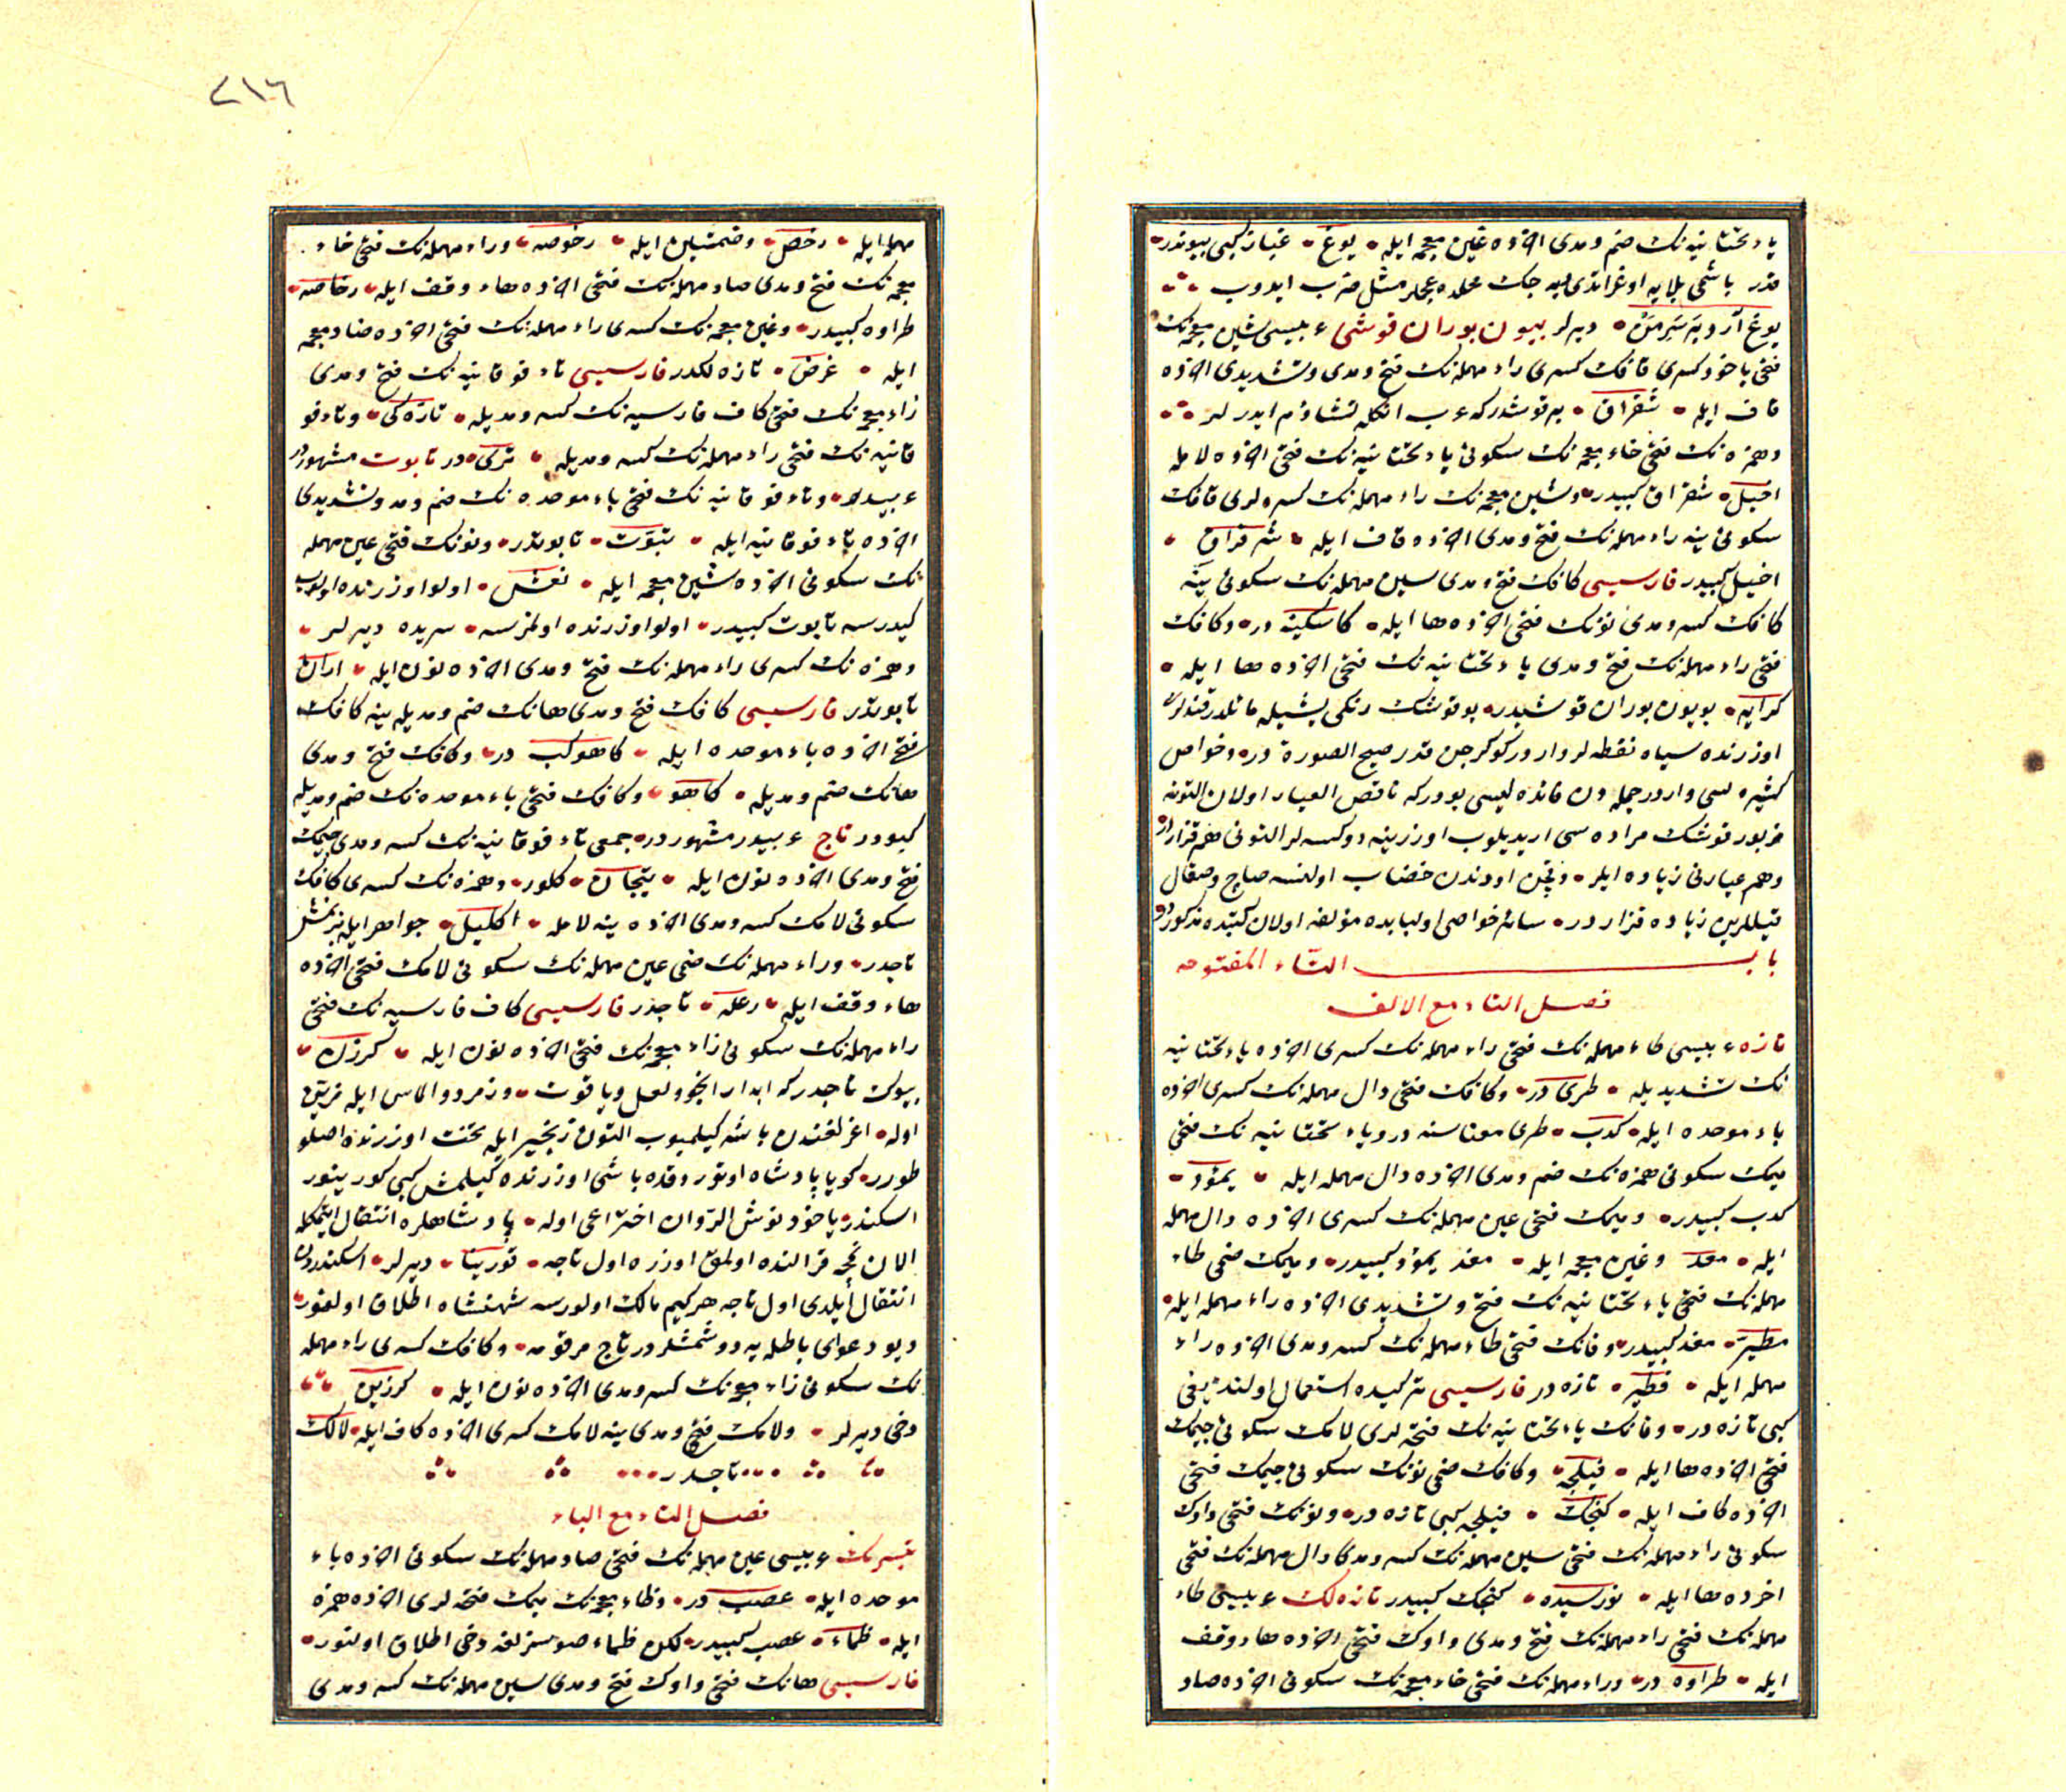 یاء تحتانیه نک ضم و مدی اخرده غین معجمه ایله یوغ عنیان کبی بیوندر
قدر باشی بلایه اوغراتدی دیه جک محلده عجملر مثل ضرب ایدوب
دیرلر بیون بوران قوشی عربیسی شین معجمه نک
فتحی یاخود کسری قافک کسری راء مهمله نک فتح و مدی و تشدیدی اخرده
قاف ایله شقراق بر قوشدر که عرب انکله تشاؤم ایدرلر
و همزه نک فتحی خاء معجمه نک سکونی یاء تحتانیه نک فتحی اخرده لامله
اخیل شقراق کبیدر و شین معجمه نک راء مهمله نک کسره لری قافک
سکونی ینه راء مهمله نک فتح و مدی اخرده قاف ایله شرقراق
اخیل کبیدر فارسیسی کافک فتح و مدی سین مهمله نک سکونی ینه
کافک کسر و مدی نونک فتحی اخرده ها ایله کاسکینه در و کافک
فتحی راء مهمله نک فتح و مدی یاء تحتانیه نک فتحی اخرده ها ایله
کرایه بویون بوران قوشیدر بو قوشک رنکی یشیله مائلدر قنادلری
اوزرنده سیاه نقطه لر واردر کوکرجن قدر صبیح الصورة در و خواص
کثیره سی واردر جمله دن فائده لیسی بودر که ناقص العیار اولان التونه
مزبور قوشک مراره سی اریدیلوب اوزرینه دوکسه لر التونی هم قزاردر
و هم عیارنی زیاده ایلر و نجن اودندن خضاب اولنسه صاچ و صقال
قیللرین زیاده قزاردر سائر خواصی اولبابده مؤلف اولان کتبده مذکوردر
باب التاء المفتوحه
فصل التاء مع الالف
تازه عربیسی طاء مهمله نک فتحی راء مهمله نک کسری اخرده یاء تحتانیه
نک تشدیدیله طری در و کافک فتحی دال مهمله نک کسری اخرده
باء موحده ایله کدب طری معناسنه در و یاء تحتانیه نک فتحی
میمک سکونی همزه نک ضم و مدی اخرده دال مهمله ایله یمؤد
کدب کبیدر و میمک فتحی عین مهمله نک کسری اخرده دال مهمله
ایله معد و غین معجمه ایله مغد یمؤد کبیدر و میمک ضمی طاء
مهمله نک فتحی یاء تحتانیه نک فتح و تشدیدی اخرده راء مهمله ایله
مطیر مغد کبیدر و فانک فتحی طاء مهمله نک کسر و مدی اخرده راء
مهمله ایله فطیر تازه در فارسیسی ترکیده استعمال اولندیغی
کبی تازه در و فانک یاء تحتانیه نک فتحه لری لامک سکونی جیمک
فتحی اخرده ها ایله فیلجه و کافک ضمی نونک سکونی جیمک فتحی
اخرده کاف ایله کنجک فیلجه کبی تازه در و نونک فتحی واوک
سکونی راء مهمله نک فتحی سین مهمله نک کسر و مدی دال مهمله نک فتحی
اخرده ها ایله نورسیده کنجک کبیدر تازه لک عربیسی طاء
مهمله نک فتحی راء مهمله نک فتح و مدی واوک فتحی اخرده هاء وقف
ایله طراوه در و راء مهمله نک فتحی خاء معجمه نک سکونی اخرده صاد
٢١٦
مهمله ایله رخص و ضمتین ایله رخوصه و راء مهمله نک فتحی خاء
معجمه نک فتح و مدی صاد مهمله نک فتحی اخرده هاء وقف ایله رخاصه
طراوه کبیدر و غین معجمه نک کسری راء مهمله نک فتحی اخرده ضاد معجمه
ایله غرض تازه لکدر فارسیسی تاء فوقانیه نک فتح و مدی
زاء معجمه نک فتحی کاف فارسیه نک کسر و مدیله تازه کی و تاء فو
قانیه نک فتحی راء مهمله نک کسر و مدیله تری در تابوت مشهوردر
عربیدر و تاء فوقانیه نک فتحی باء موحده نک ضم و مد و تشدیدی
اخرده تاء فوقانیه ایله تبوت تابوتدر و نونک فتحی عین مهمله
نک سکونی اخرده شین معجمه ایله نعش اولو اوزرنده اولوب
کیدرسه تابوت کبیدر اولو اوزرنده اولمزسه سریره دیرلر
و همزه نک کسری راء مهمله نک فتح و مدی اخرده نون ایله اران
تابوتدر فارسیسی کافک فتح و مدی هانک ضم و مدیله ینه کافک
فتحی اخرده باء موحده ایله کاهوکب در و کافک فتح و مدی
هانک ضم و مدیله کاهو و کافک فتحی باء موحده نک ضم و مدیله
کبودر تاج عربیدر مشهوردر جمعی تاء فوقانیه نک کسر و مدی جیمک
فتح و مدی اخرده نون ایله تیجان کلور و همزه نک کسری کافک
سکونی لامک کسر و مدی اخرده ینه لامله اکلیل جواهر ایله بزنمش
تاجدر و راء مهمله نک ضمی عین مهمله نک سکونی لامک فتحی اخرده
هاء وقف ایله رعله تاجدر فارسیسی کاف فارسیه نک فتحی
راء مهمله نک سکونی زاء معجمه نک فتحی اخرده نون ایله کرزن
بیوک تاجدر که ابدار انجو و لعل و یاقوت و زمرد و الماس ایله مزین
اوله اغرلغندن باشه کیلمیوب التون زنجیر ایله تخت اوزرنده اصلو
طورر کویا پادشاه اوتوردقده باشی اوزرنده کیلمش کبی کورینور
اسکندر یاخود نوش الروان اختراعی اوله پادشاهلره انتقال ایتمکله
الان نمچه قرالنده اولمق اوزره اول تاجه قورینا دیرلر اسکندردن
انتقال ایلدی اول تاجه هرکیم مالک اولورسه شهنشاه اطلاق اولنور
دیو دعوای باطله یه دوشمشلردر تاج مرقومه و کافک کسری راء مهمله
نک سکونی زاء معجمه نک کسر و مدی اخرده نون ایله کرزین
دخی دیرلر و لامک فتح و مدی ینه لامک کسری اخرده کاف ایله لالک
تاجدر
فصل التاء مع الباء
عربیسی عین مهمله نک فتحی صاد مهمله نک سکونی اخرده باء
موحده ایله عصب در و ظاء معجمه نک میمک فتحه لری اخرده همزه
ایله ظماء عصب کبیدر لکن ظماء صوسزلغه دخی اطلاق اولنور
فارسیسی هانک فتحی واوک فتح و مدی سین مهمله نک کسر و مدی